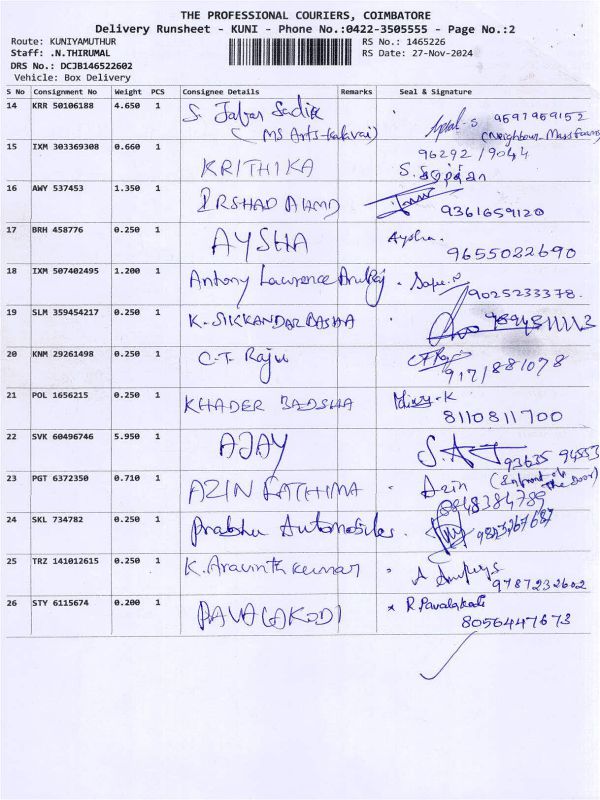 THE PROFESSIONAL COURIERS, COIMBATORE
Delivery Runsheet - KUNI - Phone No.:0422-3505555 - Page No.:2
Route: KUNIYAMUTHUR
RS No.: 1465226
Staff: .N.THIRUMAL
RS Date: 27-Nov-2024
DRS No.: DCJB146522602
Vehicle: Box Delivery
S No Consignment No Weight PCS Consignee Details Remarks Seal & Signature
14 KRR 50106188 4.650 1 S. Jafar Sadik
(MS Arts-
(Neighbour
15 IXM 303369308 0.660 1 KRITHIKA
96292 / 9044
16 AWY 537453 1.350 1 IRSHAD AHMD
9361659120
17 BRH 458776 0.250 1 AYSHA Aysha.
9655022690
18 IXM 507402495 1.200 1 Antony Lawrence
9025233378.
19 SLM 359454217 0.250 1 K. SIKKANDAR BASHA
20 KNM 29261498 0.250 1 C.T. Raju
917/881078
21 POL 1656215 0.250 1 KHADER BADSHA
8110811700
22 SVK 60496746 5.950 1 AJAY
93635 94553
23 PGT 6372350 0.710 1 AZIN FATHIMA Azin
The Door)
8848384789
24 SKL 734782 0.250 1 Prabhu Automobiles.
25 TRZ 141012615 0.250 1 K. Aravinth kumar
9787232602
26 STY 6115674 0.200 1 PAVALAKODI R. Pavalakodi
8056447673